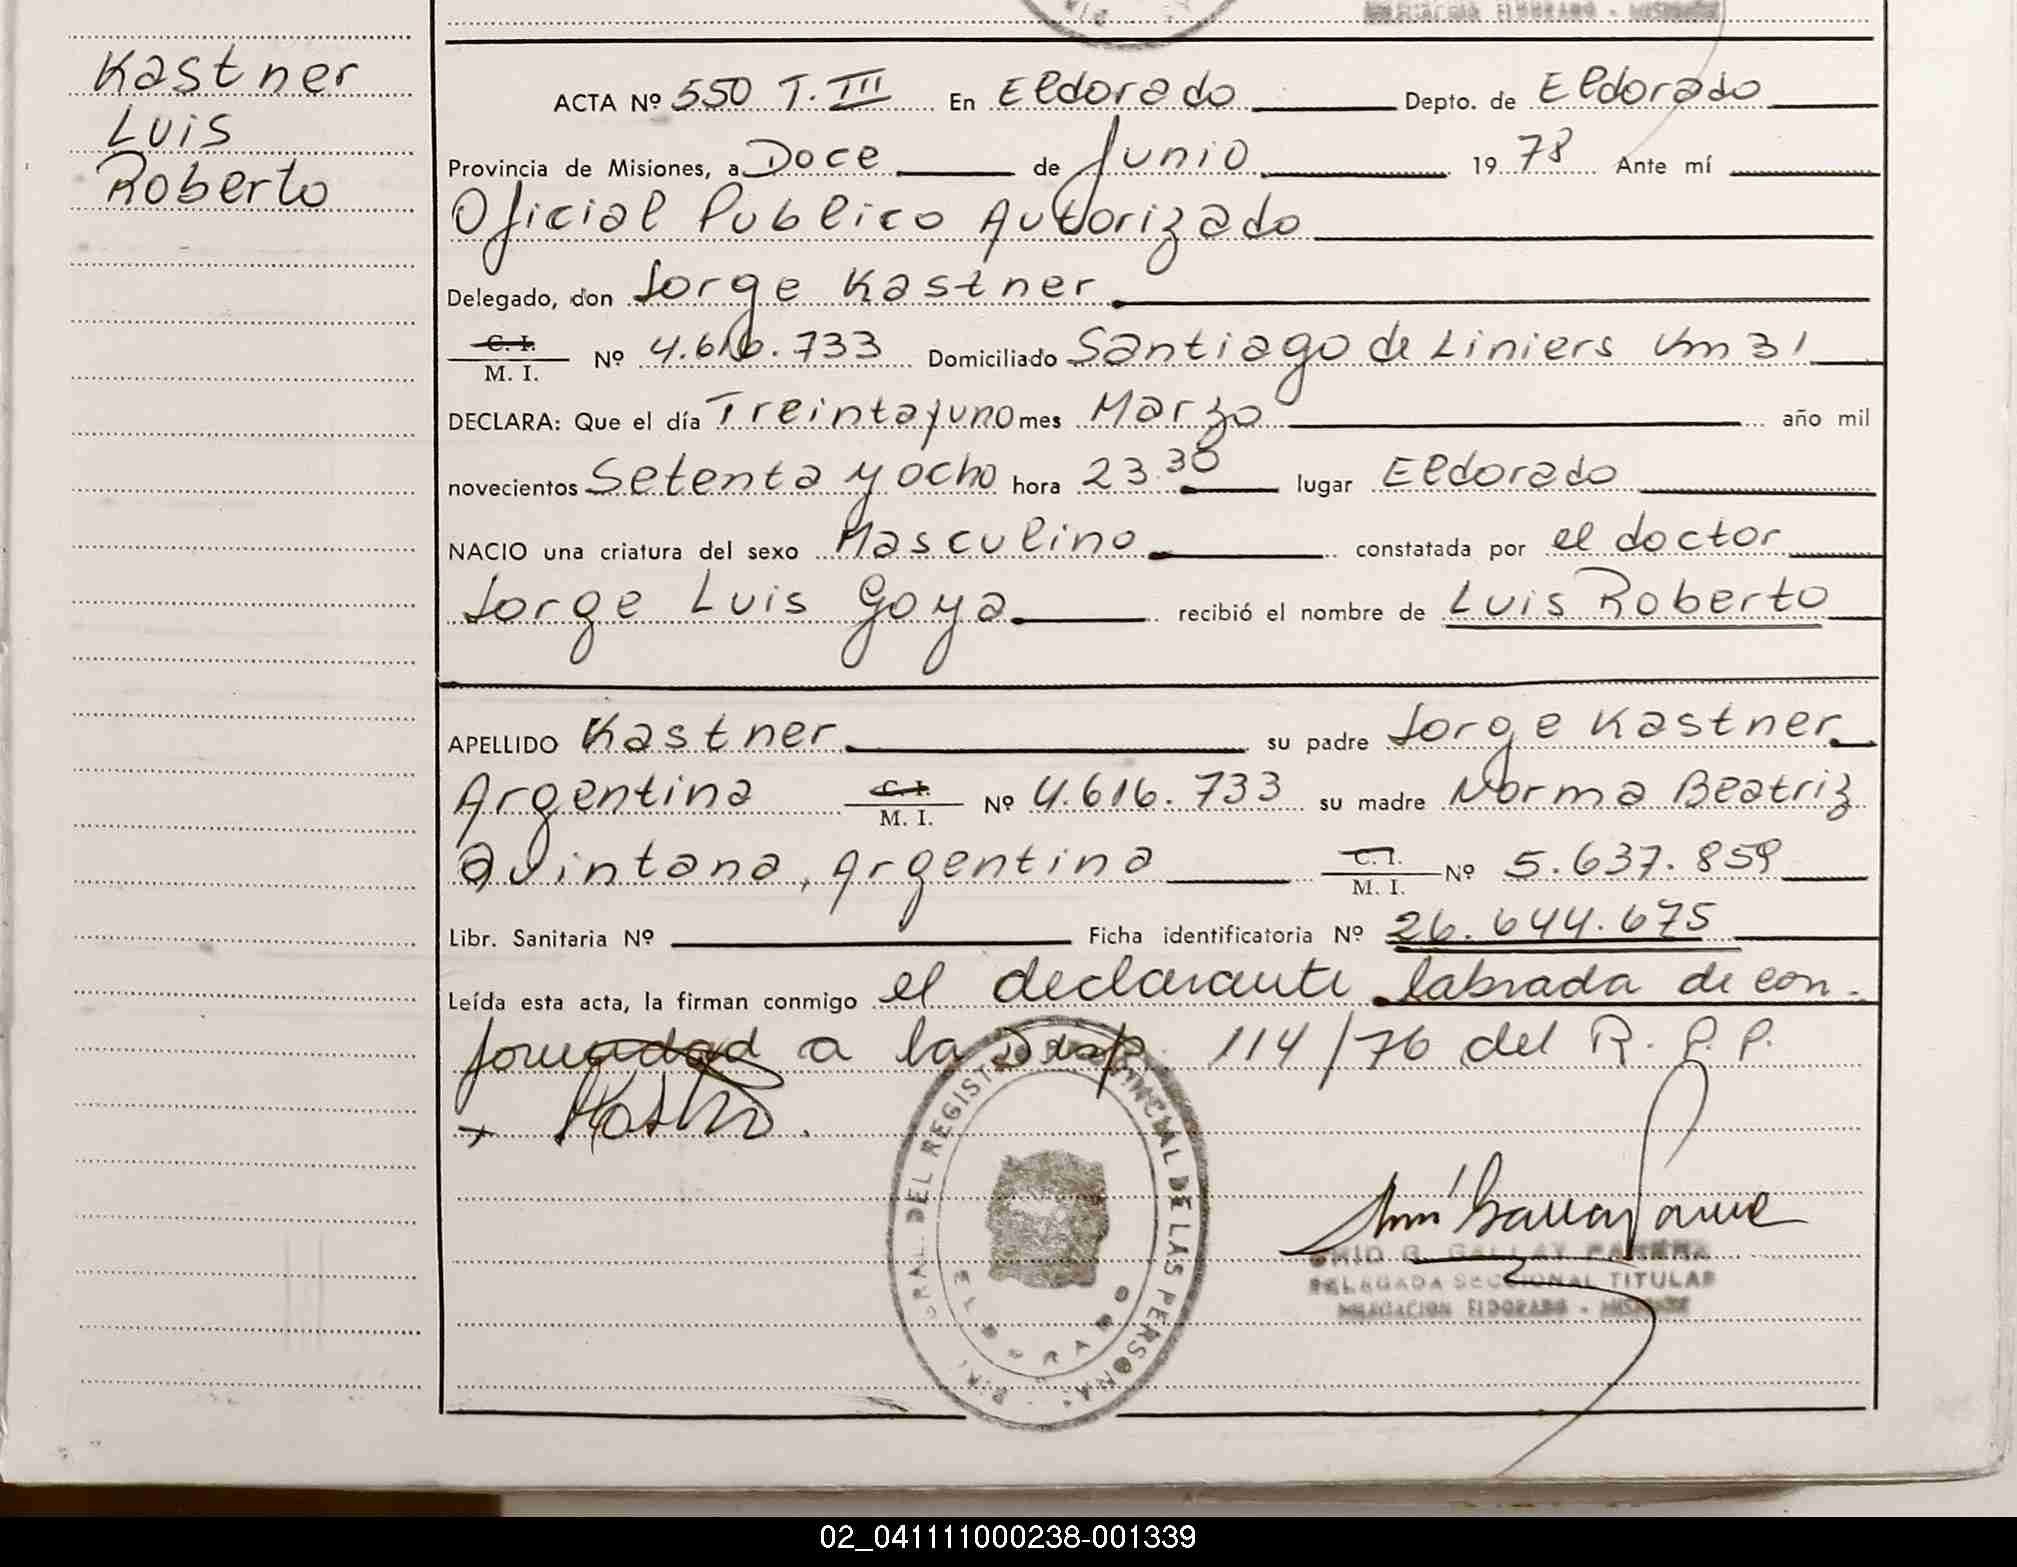 Kastner
Luis
Roberto
ACTA Nº 550 T. III En Eldorado Depto. de Eldorado
Provincia de Misiones, a Doce de Junio 19 78 Ante mí
Oficial Publico Autorizado
Delegado, don Jorge Kastner
C. I.
M. I. Nº 4.616.733 Domiciliado Santiago de Liniers Km 31
DECLARA: Que el día Treinta y uno mes Marzo año mil
novecientos Setenta y ocho hora 23.30 lugar Eldorado
NACIO una criatura del sexo Masculino constatada por el doctor
Jorge Luis Goya recibió el nombre de Luis Roberto
APELLIDO Kastner su padre Jorge Kastner
Argentina C. I. M. I. Nº 4.616.733 su madre Norma Beatriz
Quintana, Argentina C. I. M. I. Nº 5.637.859
Libr. Sanitaria Nº Ficha identificatoria Nº 26.644.675
Leída esta acta, la firman conmigo el declarante labrada de con-
formidad a la Disp. 114/76 del R. P. P.
DEL REGISTRO PROVINCIAL DE LAS PERSONAS
ELDORADO
G. GALLAY
DELEGADA SECCIONAL TITULAR
DELEGACION ELDORADO - MISIONES
02_041111000238-001339